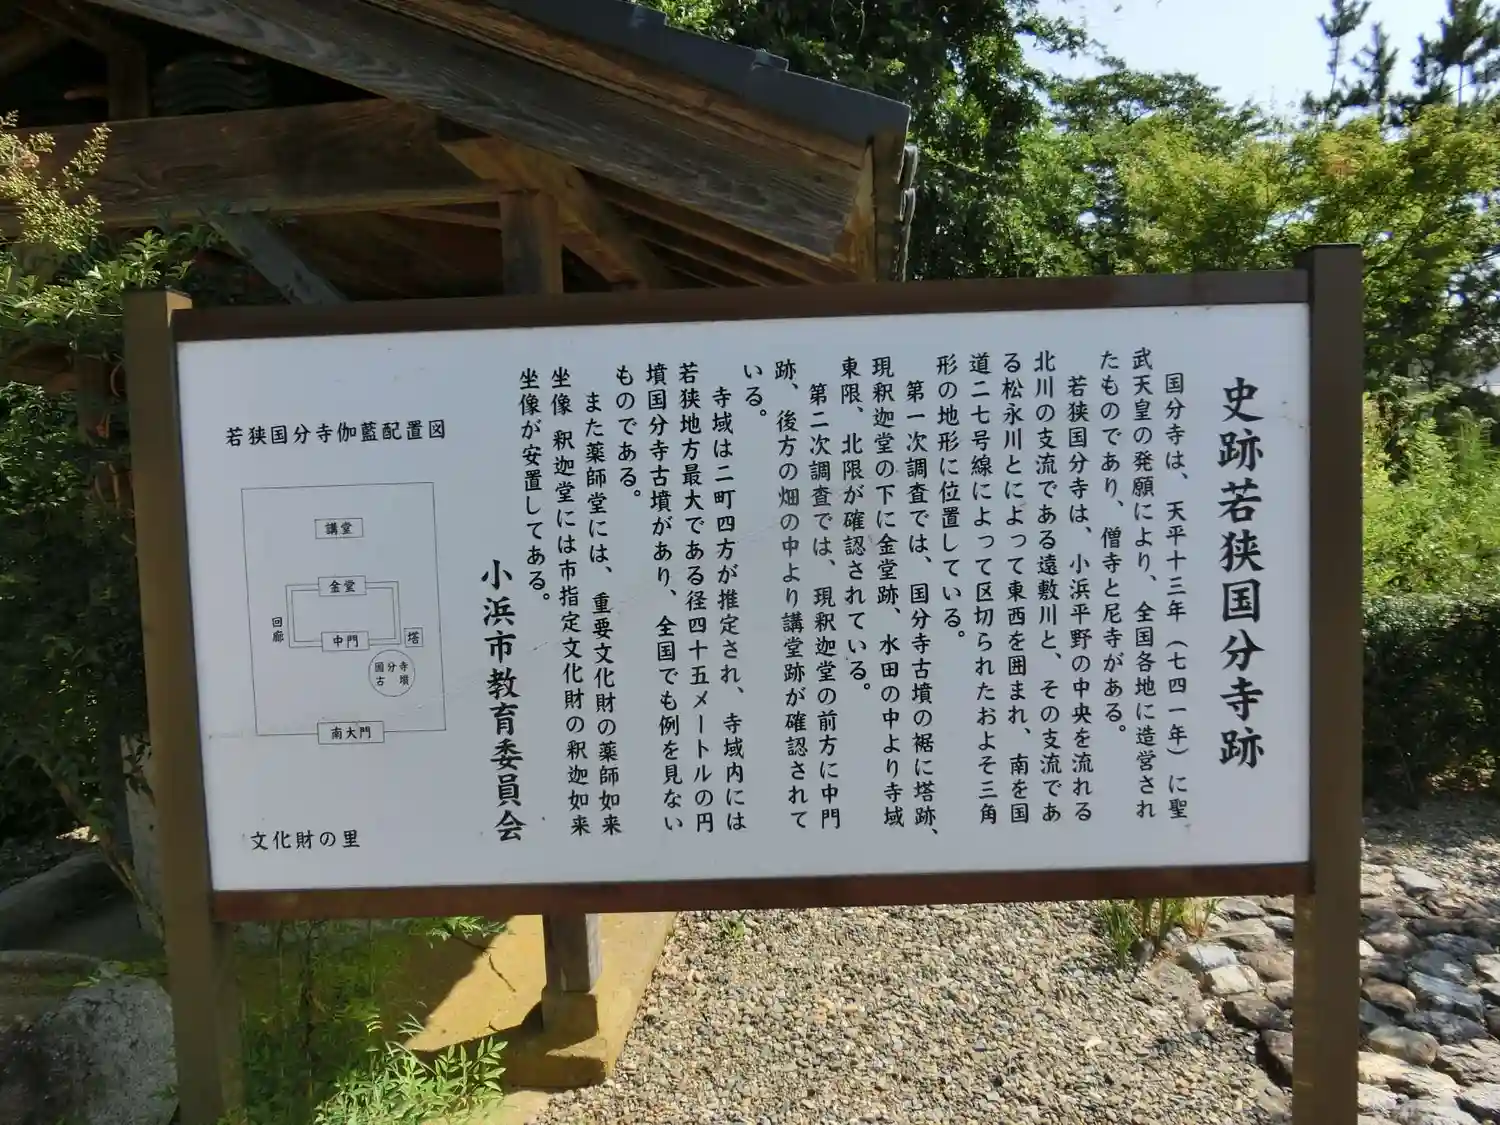 史跡若狭国分寺跡
国分寺は、天平十三年（七四一年）に聖
武天皇の発願により、全国各地に造営され
たものであり、僧寺と尼寺がある。
若狭国分寺は、小浜平野の中央を流れる
北川の支流である遠敷川と、その支流であ
る松永川とによって東西を囲まれ、南を国
道二七号線によって区切られたおよそ三角
形の地形に位置している。
第一次調査では、国分寺古墳の裾に塔跡、
現釈迦堂の下に金堂跡、水田の中より寺域
東限、北限が確認されている。
第二次調査では、現釈迦堂の前方に中門
跡、後方の畑の中より講堂跡が確認されて
いる。
寺域は二町四方が推定され、寺域内には
若狭地方最大である径四十五メートルの円
墳国分寺古墳があり、全国でも例を見ない
ものである。
また薬師堂には、重要文化財の薬師如来
坐像 釈迦堂には市指定文化財の釈迦如来
坐像が安置してある。
小浜市教育委員会
若狭国分寺伽藍配置図
講堂
金堂
回廊
中門
塔
國分寺
古墳
南大門
文化財の里